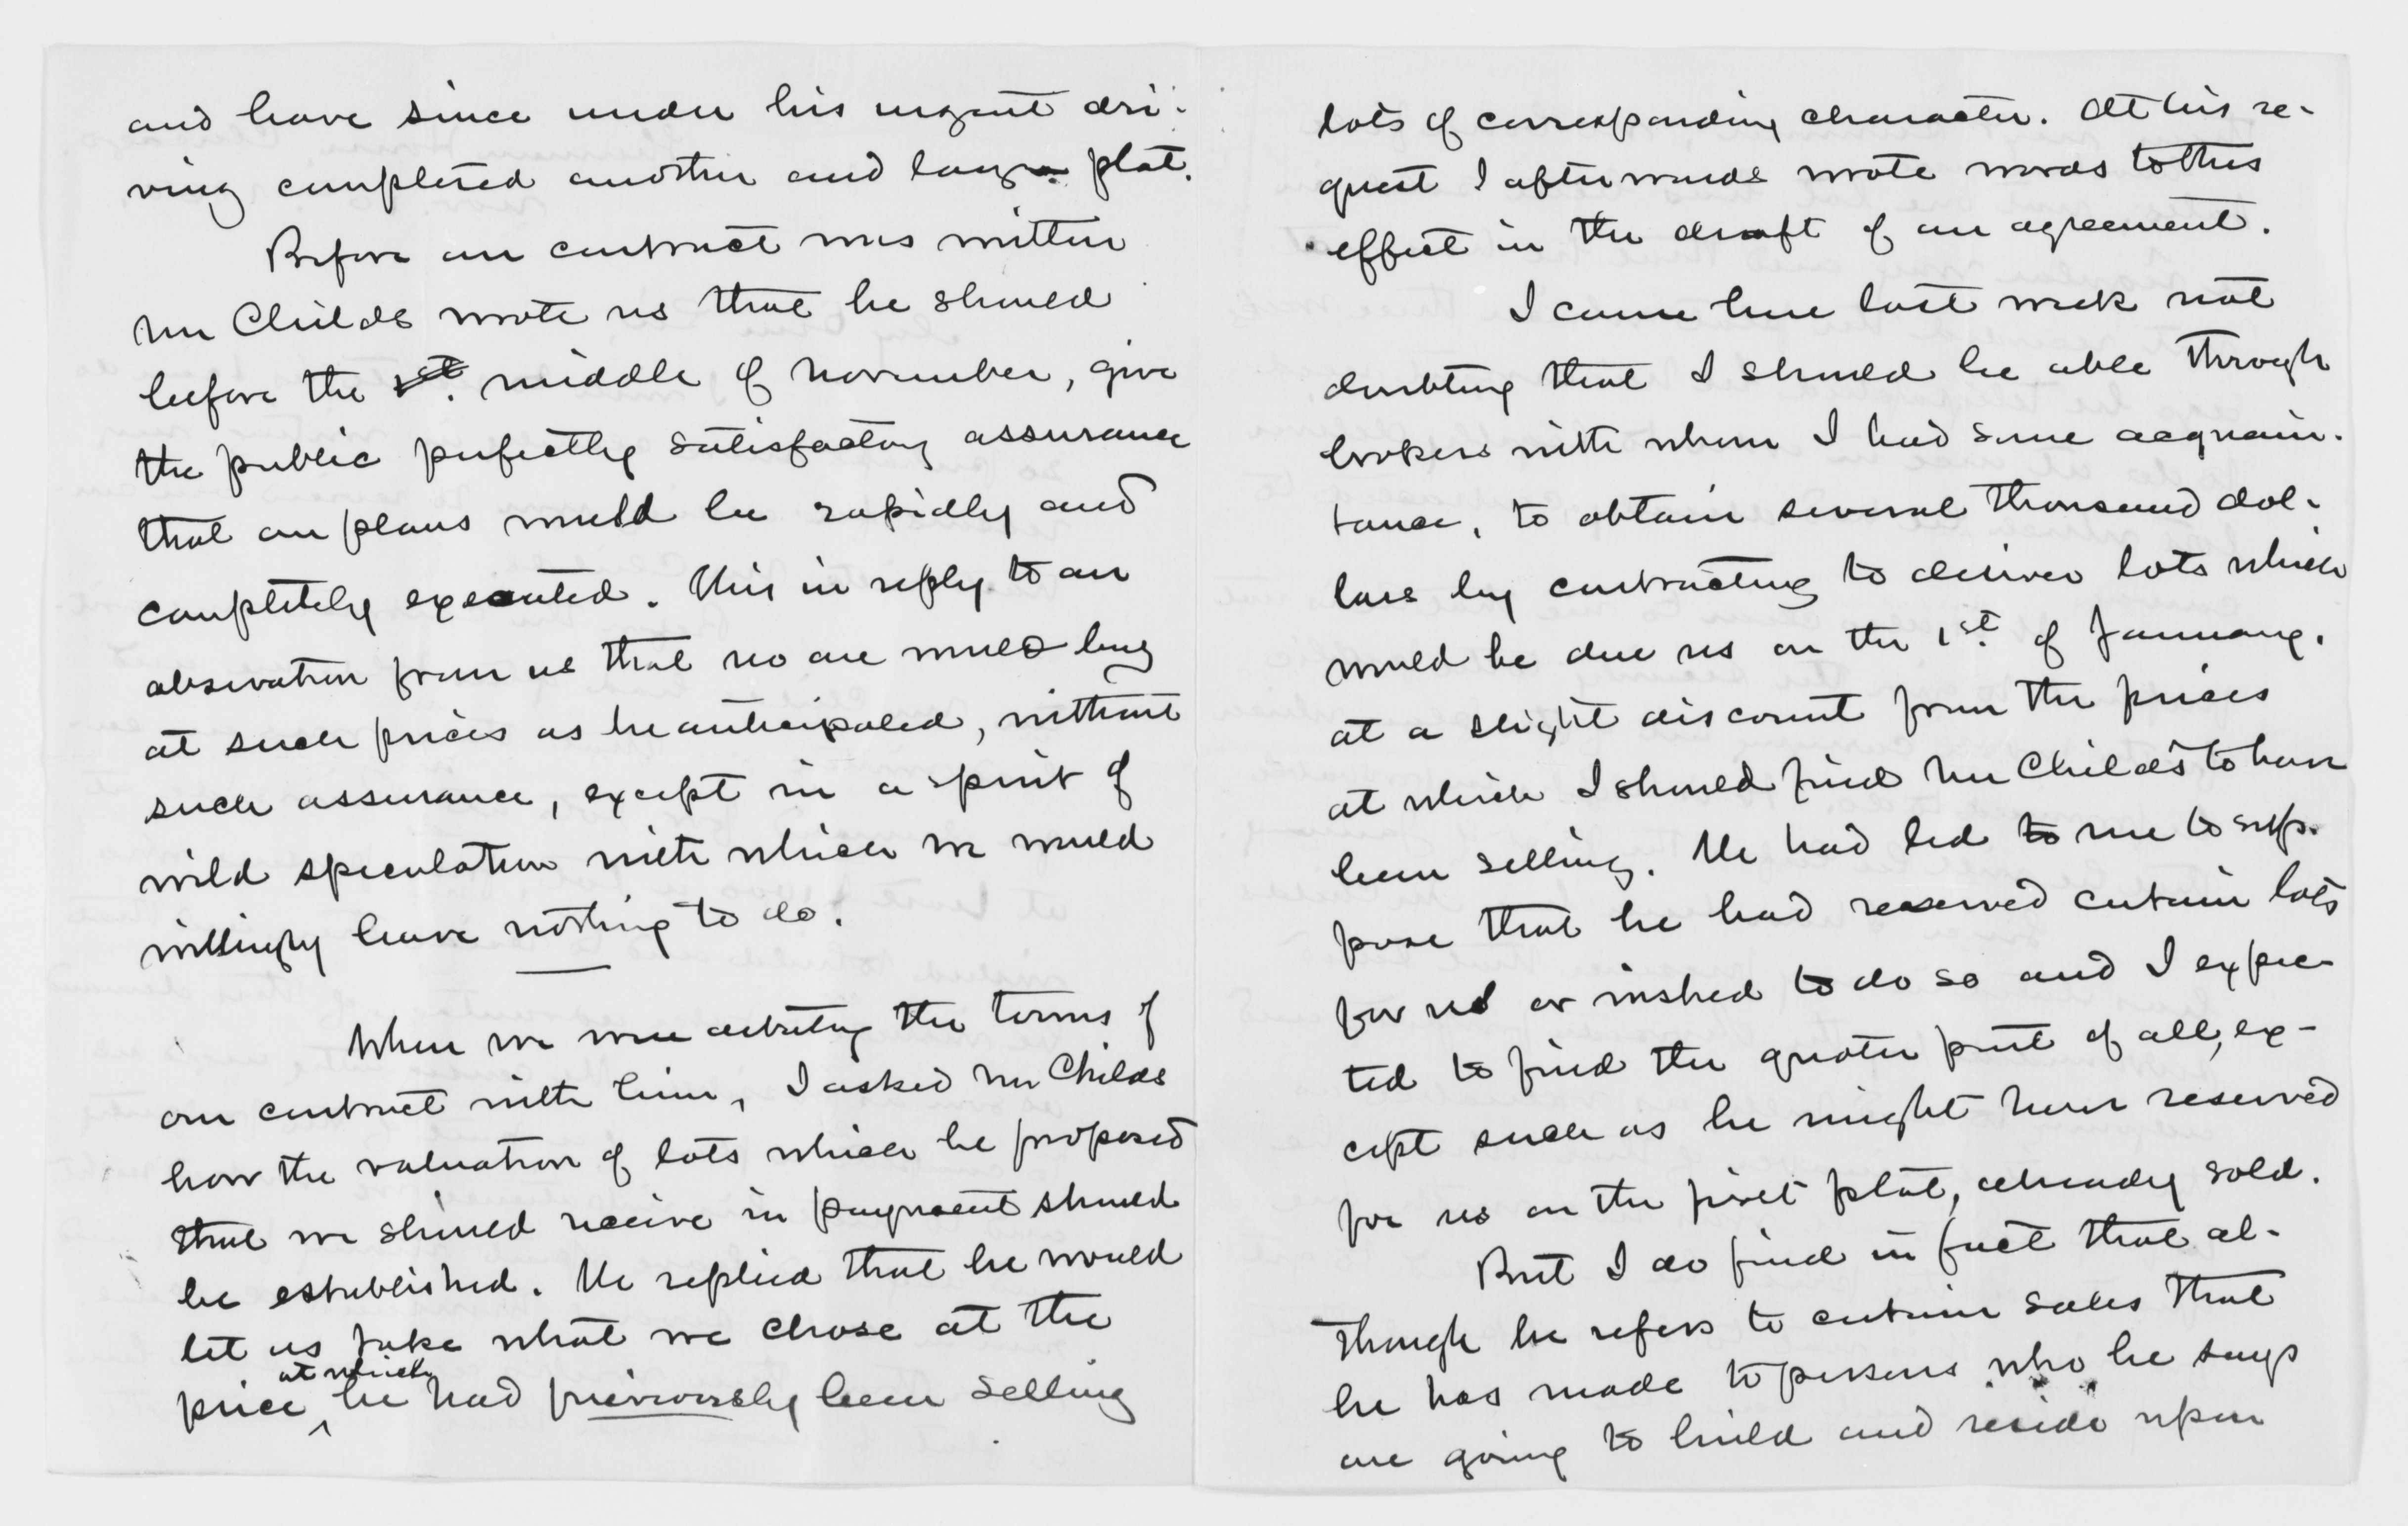 and have since under his urgent dri-
ving completed another and larger plat.
Before our contract was written
Mr Childs wrote us that he should
before the 1st. middle of November, give
the public perfectly satisfactory assurance
that our plans would be rapidly and
completely executed. This in reply to our
observation from us that no one would buy
at such prices as he anticipated, without
such assurance, except in a spirit of
wild speculation with which we would
willingly have nothing to do.
When we were debating the terms of
our contract with him, I asked Mr Childs
how the valuation of lots which he proposed
that we should receive in payment should
be established. He replied that he would
let us take what we chose at the
at which
price he had previously been selling
lots of corresponding character. At his re-
quest I afterwards wrote words to this
effect in the draft of our agreement.
I came here last week not
doubting that I should be able through
brokers with whom I had some acquain-
tance, to obtain several thousand dol-
lars by contracting to deliver lots which
would be due us on the 1st. of January.
at a slight discount from the prices
at which I should find Mr Childs to have
been selling. He had led to me to sup-
pose that he had reserved certain lots
for us or wished to do so and I expec-
ted to find the greater part of all, ex-
cept such as he might have reserved
for us on the first plat, already sold.
But I do find in fact that al-
though he refers to certain sales that
he has made to persons who he says
are going to build and reside upon